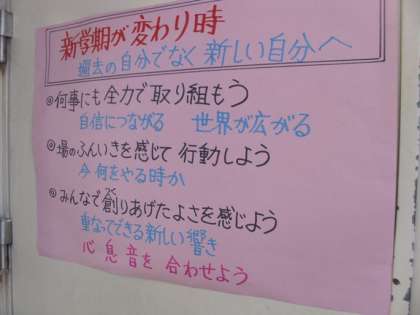 新学期が変わり時
過去の自分でなく新しい自分へ
◎何事にも全力で取り組もう
自信につながる 世界が広がる
◎場のふんいきを感じて 行動しよう
今何をやる時か
◎みんなで創りあげたよさを感じよう
つく
重なってできる新しい響き
心 息 音を 合わせよう